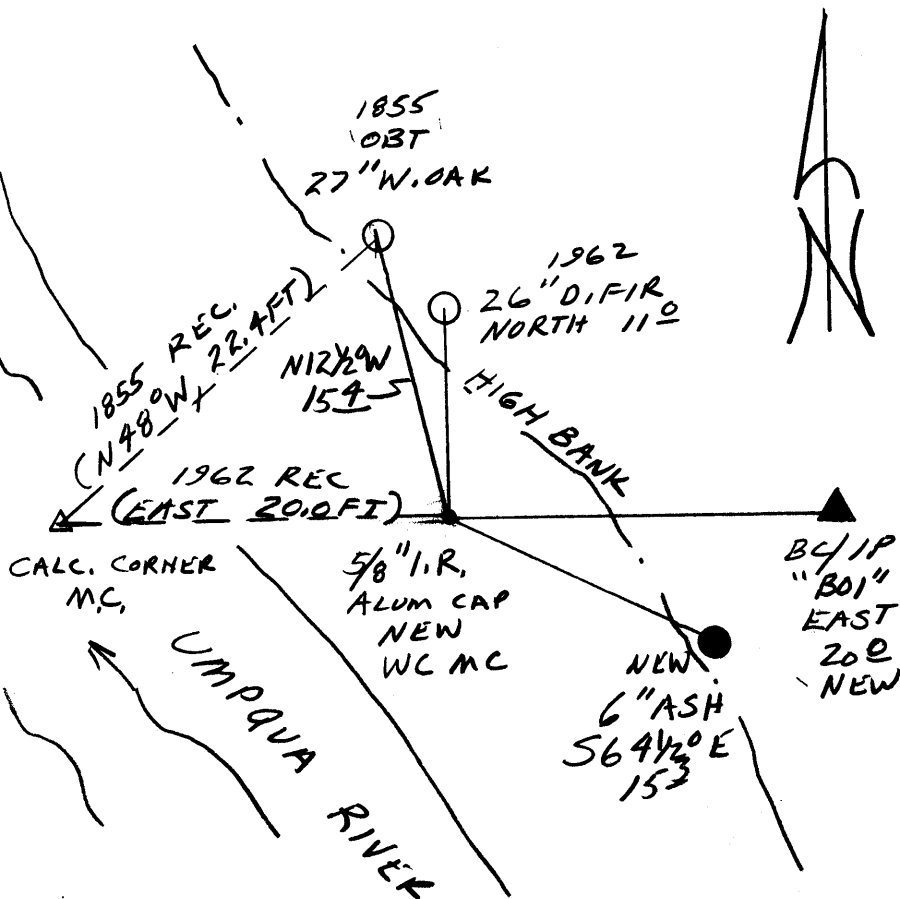 1855
OBT
27" W. OAK
N
1962
26" D. FIR
NORTH 11⁰
1855 REC.
(N48°W, 22.4FT)
N12½°W
15⁴
HIGH BANK
1962 REC
(EAST 20.0FT)
CALC. CORNER
M.C.
5/8" I.R.
ALUM CAP
NEW
WC MC
BC/IP
"BO1"
EAST
20⁰
NEW
NEW
6" ASH
S64½°E
15³
UMPQUA RIVER